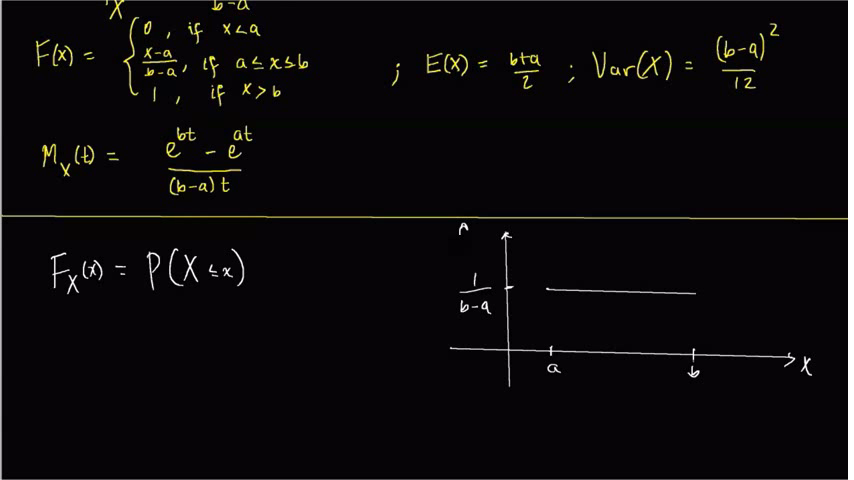 X b-a
F(x) = { 0, if x<a
x-a/b-a, if a≤x≤b
1, if x>b
; E(X) = b+a/2 ; Var(X) = (b-a)²/12
M_X(t) = e^bt - e^at / (b-a)t
F_X(x) = P(X ≤ x)
1/b-a
a
b
X